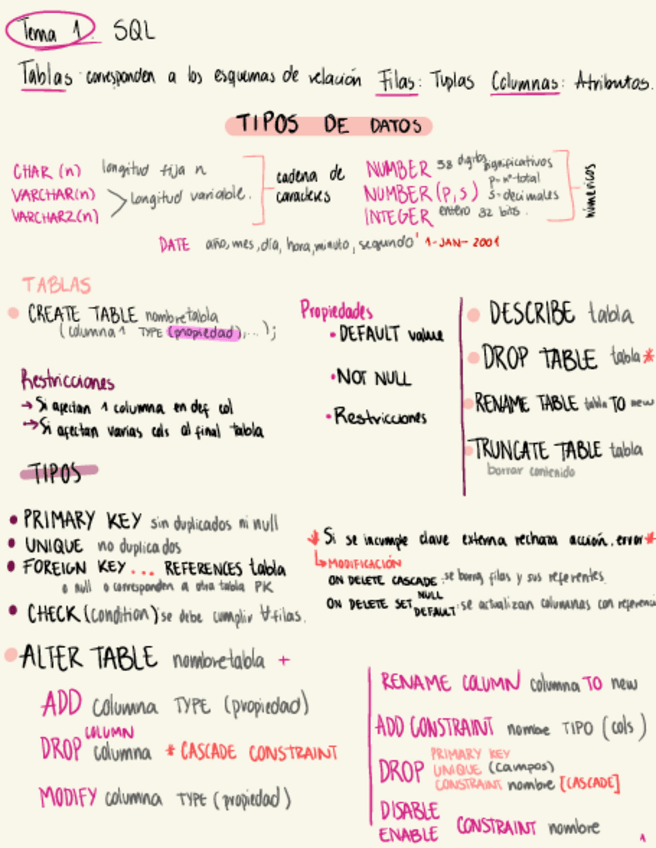 Tema 1. SQL
Tablas corresponden a los esquemas de relación Filas: Tuplas Columnas: Atributos.
TIPOS DE DATOS
CHAR (n) longitud fija n
VARCHAR(n)
VARCHAR2(n)
longitud variable.
cadena de caracteres
NUMBER 38 digitos significativos
NUMBER (P,S) p=nº total s=decimales
INTEGER entero 32 bits.
numéricos
DATE año, mes, día, hora, minuto, segundo '1-JAN-2001
TABLAS
CREATE TABLE nombretabla
(columna 1 TYPE (propiedad), ...);
Restricciones
→ Si afectan 1 columna en def col
→ Si afectan varias cols al final tabla
Propiedades
• DEFAULT value
• NOT NULL
• Restricciones
DESCRIBE tabla
DROP TABLE tabla *
RENAME TABLE tabla TO new
TRUNCATE TABLE tabla
borrar contenido
TIPOS
• PRIMARY KEY sin duplicados ni null
• UNIQUE no duplicados
• FOREIGN KEY ... REFERENCES tabla
o null o corresponden a otra tabla PK
• CHECK (condition) se debe cumplir ∀ filas.
* Si se incumple clave externa rechaza acción. error *
MODIFICACIÓN
ON DELETE CASCADE: se borra filas y sus referentes
ON DELETE SET NULL DEFAULT: se actualizan columnas con
ALTER TABLE nombretabla +
ADD columna TYPE (propiedad)
DROP COLUMN columna * CASCADE CONSTRAINT
MODIFY columna TYPE (propiedad)
RENAME COLUMN columna TO new
ADD CONSTRAINT nombre TIPO (cols)
DROP PRIMARY KEY
UNIQUE (campos)
CONSTRAINT nombre [CASCADE]
DISABLE
ENABLE CONSTRAINT nombre
1